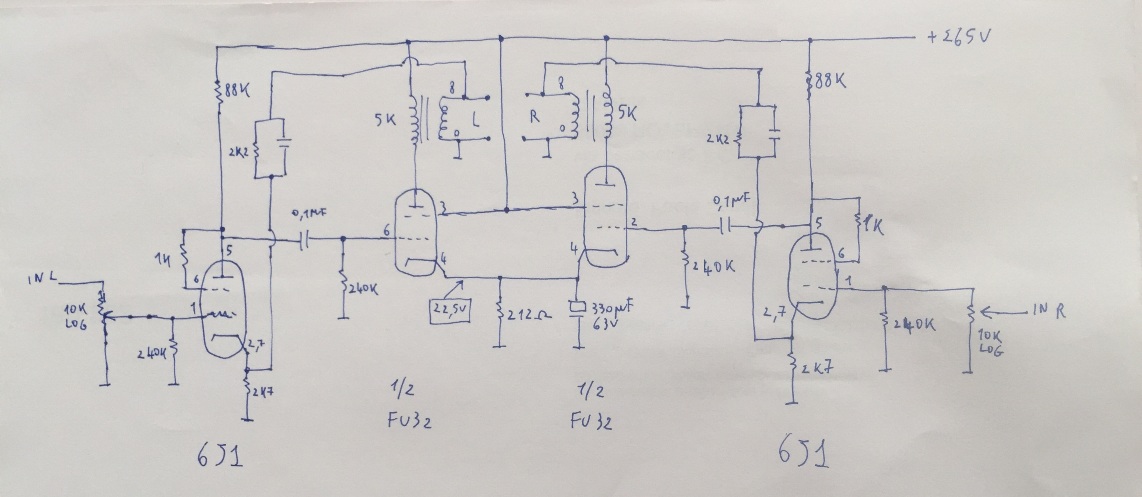 +265V
88K
8
8
88K
5K
L
R
5K
2K2
0
0
2K2
0,1µF
3
3
0,1µF
6
2
5
1K
4
4
5
1K
IN L
6
240K
240K
6
10K
LOG
1
22,5V
212Ω
330µF
63V
1
IN R
240K
2,7
2,7
240K
10K
LOG
2K7
2K7
1/2
FU32
1/2
FU32
6J1
6J1